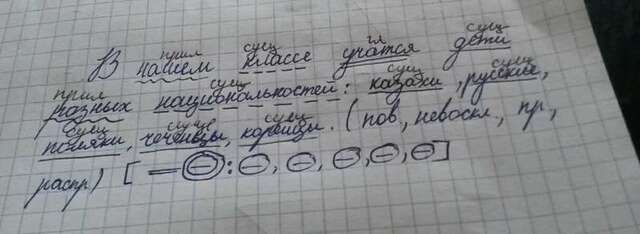 прил сущ гл сущ
В нашем классе учатся дети
прил сущ сущ сущ
разных национальностей: казахи, русские,
сущ сущ сущ
поляки, чеченцы, корейцы. (пов, невоскл, пр,
распр) [ — : — , — , — , — , — ]